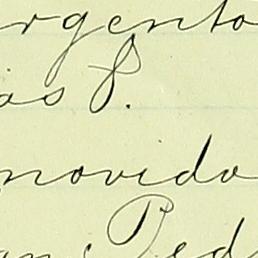 rgento
as P.
movido
Ped